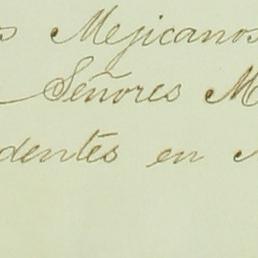 s Mejicanos
Señores M
dentes en